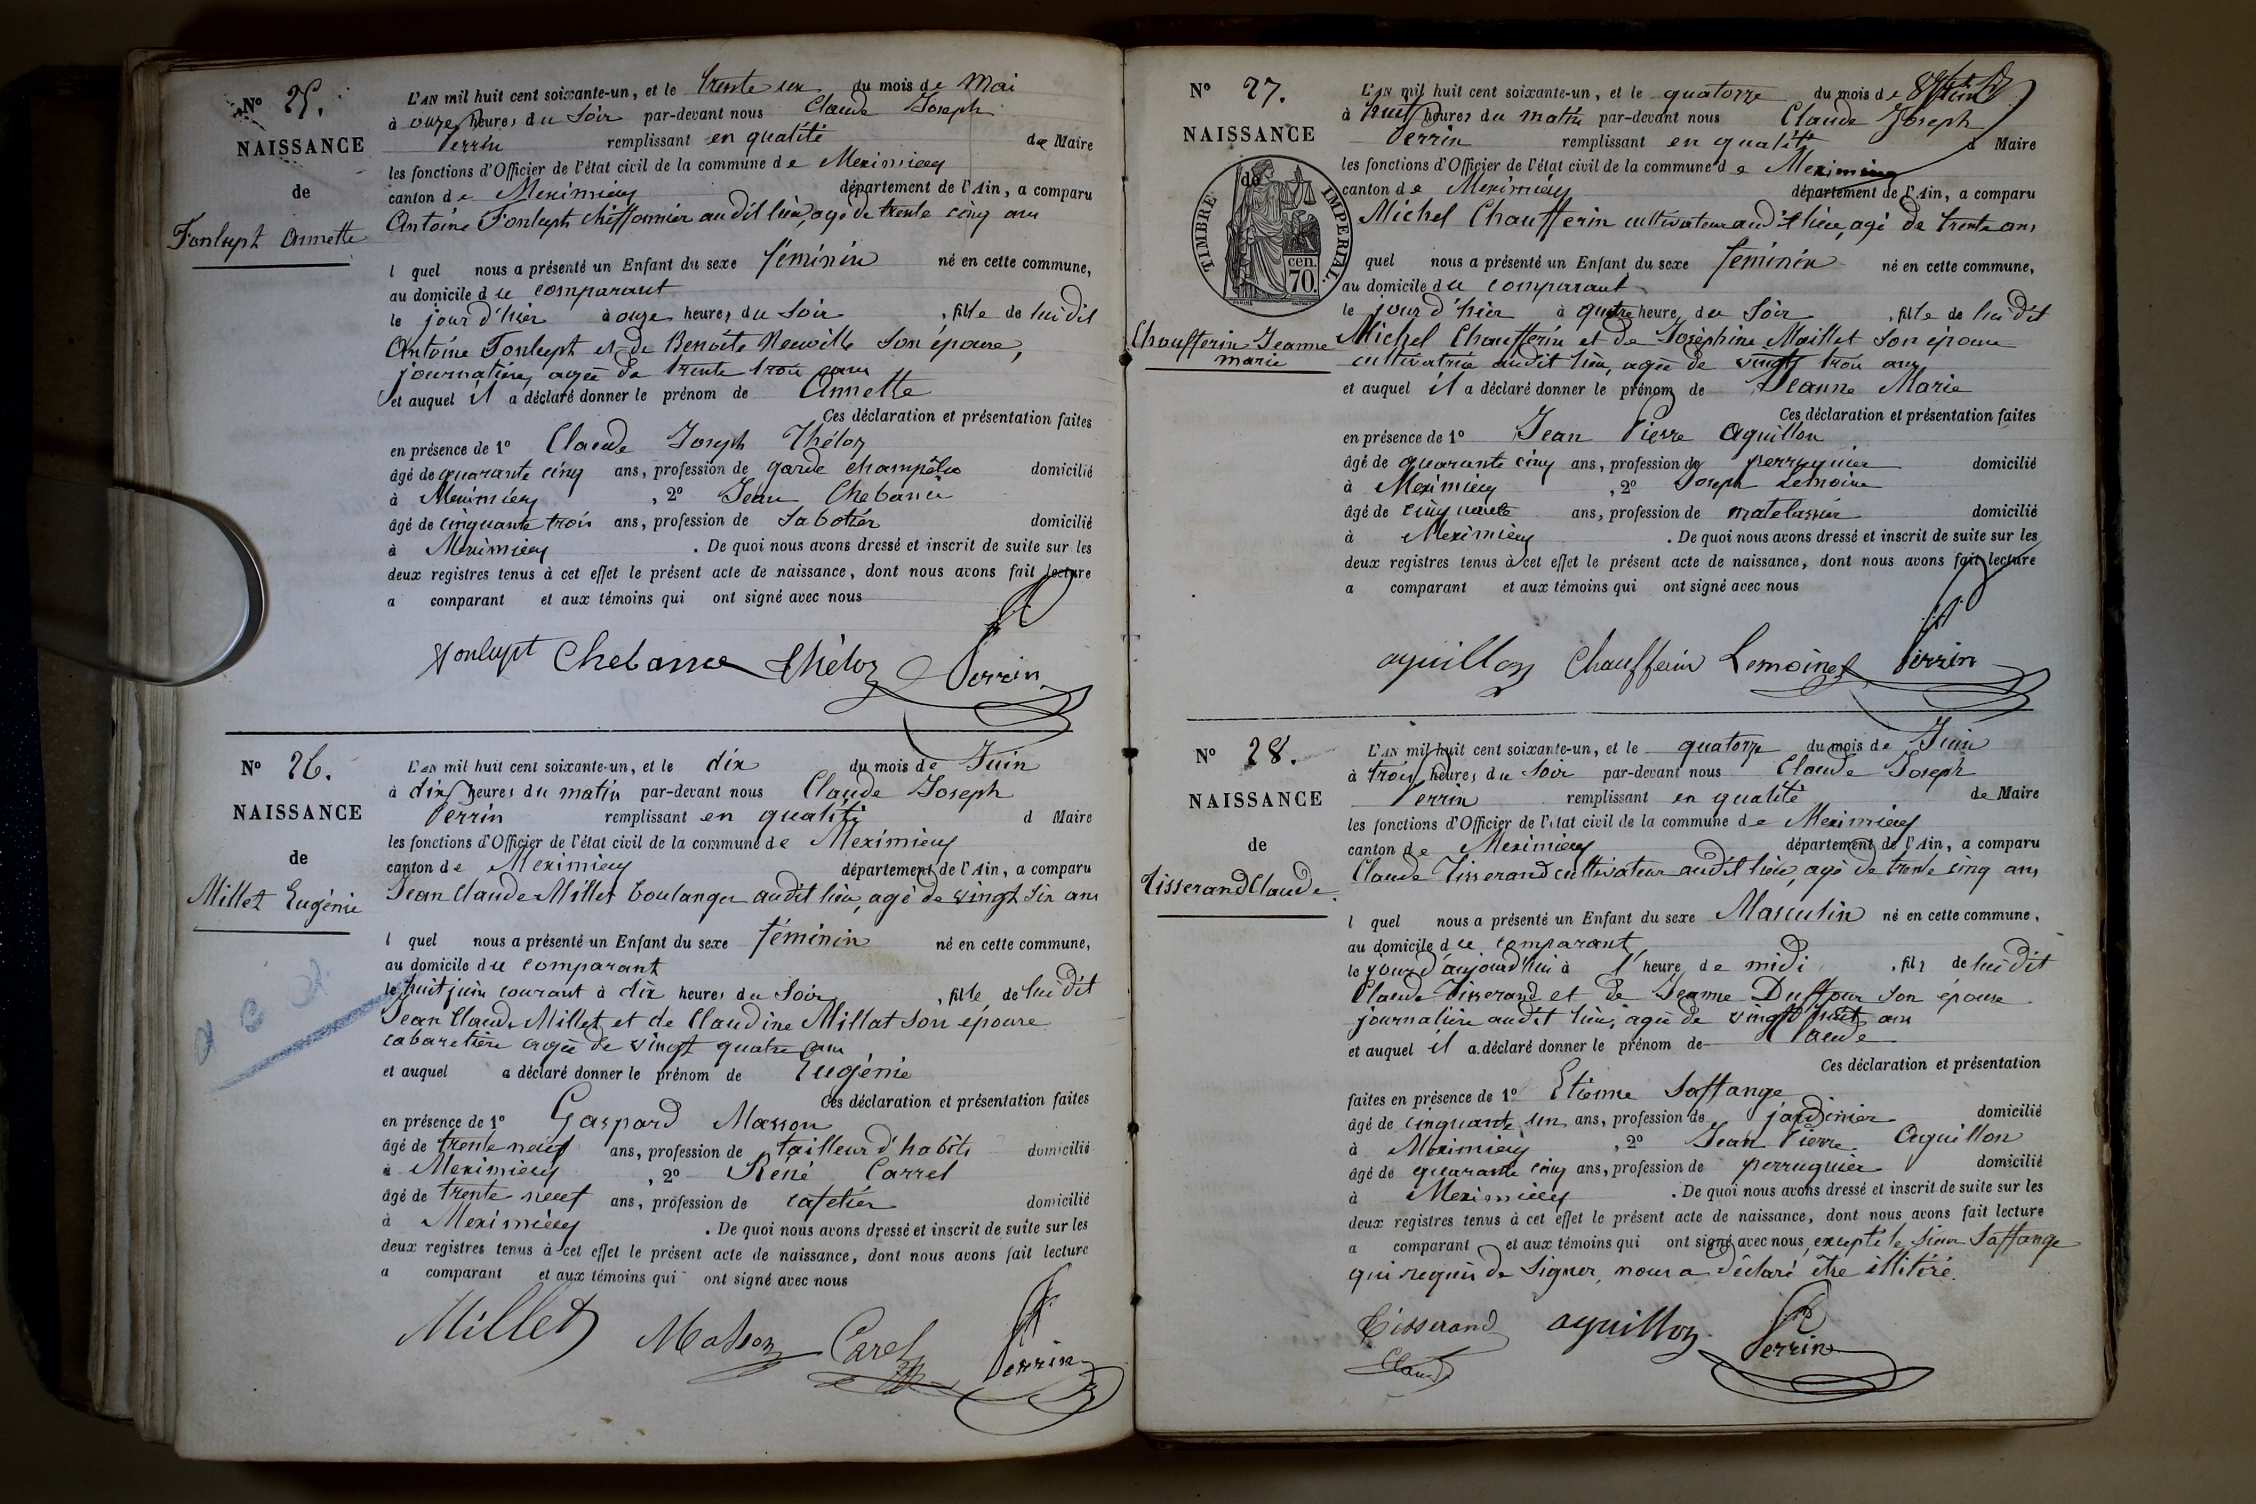 N° 25.
NAISSANCE
de
Fonlupt Annette
L'AN mil huit cent soixante-un, et le trente un du mois de Mai
à onze heures du Soir par-devant nous Claude Joseph
Perrin remplissant en qualité de Maire
les fonctions d'Officier de l'état civil de la commune de Meximieux
canton de Meximieux département de l'Ain, a comparu
Antoine Fonlupt chiffonnier audit lieu, agé de trente cinq ans
l quel nous a présenté un Enfant du sexe féminin né en cette commune,
au domicile du comparant
le jour d'hier à onze heures du Soir , fille de lui dit
Antoine Fonlupt et de Benoite Neuville son épouse,
journalière, agée de trente trois ans
et auquel il a déclaré donner le prénom de Annette
Ces déclaration et présentation faites
en présence de 1° Claude Joseph Théloz
âgé de quarante cinq ans, profession de garde champêtre domicilié
à Meximieux , 2° Jean Chebance
âgé de cinquante trois ans, profession de Sabotier domicilié
à Meximieux . De quoi nous avons dressé et inscrit de suite sur les
deux registres tenus à cet effet le présent acte de naissance, dont nous avons fait lecture
a comparant et aux témoins qui ont signé avec nous
Fonlupt Chebance Théloz Perrin
N° 26.
NAISSANCE
de
Millet Eugénie
L'AN mil huit cent soixante-un, et le dix du mois de Juin
à dix heures du matin par-devant nous Claude Joseph
Perrin remplissant en qualité d Maire
les fonctions d'Officier de l'état civil de la commune de Meximieux
canton de Meximieux département de l'Ain, a comparu
Jean Claude Millet boulanger audit lieu, agé de vingt six ans
l quel nous a présenté un Enfant du sexe féminin né en cette commune,
au domicile du comparant
le huit juin courant à dix heures du Soir , fille de lui dit
Jean Claude Millet et de Claudine Millat son épouse
cabaretière agée de vingt quatre ans
et auquel a déclaré donner le prénom de Eugénie
Ces déclaration et présentation faites
en présence de 1° Gaspard Masson
âgé de trente neuf ans, profession de tailleur d'habits domicilié
à Meximieux , 2° René Carrel
âgé de trente neuf ans, profession de cafetier domicilié
à Meximieux . De quoi nous avons dressé et inscrit de suite sur les
deux registres tenus à cet effet le présent acte de naissance, dont nous avons fait lecture
a comparant et aux témoins qui ont signé avec nous
Millet Masson Carel Perrin
N° 27.
NAISSANCE
de
TIMBRE IMPERIAL.
cen.
70.
Chaufferin Jeanne
marie
L'AN mil huit cent soixante-un, et le quatorze du mois de Juin
à huit heures du matin par-devant nous Claude Joseph
Perrin remplissant en qualité d Maire
les fonctions d'Officier de l'état civil de la commune de Meximieux
canton de Meximieux département de l'Ain, a comparu
Michel Chaufferin cultivateur audit lieu, agé de trente ans
quel nous a présenté un Enfant du sexe féminin né en cette commune,
au domicile du comparant
le jour d'hier à quatre heure du Soir , fille de lui dit
Michel Chaufferin et de Joséphine Maillet son épouse
cultivatrice audit lieu, agée de vingt trois ans
et auquel il a déclaré donner le prénom de Jeanne Marie
Ces déclaration et présentation faites
en présence de 1° Jean Pierre Aguillon
âgé de quarante cinq ans, profession de perruquier domicilié
à Meximieux , 2° Joseph Lemoine
âgé de cinquante ans, profession de matelassier domicilié
à Meximieux . De quoi nous avons dressé et inscrit de suite sur les
deux registres tenus à cet effet le présent acte de naissance, dont nous avons fait lecture
a comparant et aux témoins qui ont signé avec nous
aguillon Chaufferin Lemoine Perrin
N° 28.
NAISSANCE
de
Tisserand Claude.
L'AN mil huit cent soixante-un, et le quatorze du mois de Juin
à trois heures du Soir par-devant nous Claude Joseph
Perrin remplissant en qualité de Maire
les fonctions d'Officier de l'état civil de la commune de Meximieux
canton de Meximieux département de l'Ain, a comparu
Claude Tisserand cultivateur audit lieu, agé de trente cinq ans
l quel nous a présenté un Enfant du sexe Masculin né en cette commune,
au domicile du comparant
le jour d'aujourd'hui à l'heure de midi , fils de lui dit
Claude Tisserand et de Jeanne Duffour son épouse
journalière audit lieu, agée de vingt huit ans
et auquel il a déclaré donner le prénom de Claude
Ces déclaration et présentation
faites en présence de 1° Etienne Saffange
âgé de cinquante un ans, profession de jardinier domicilié
à Meximieux , 2° Jean Pierre Aguillon
âgé de quarante cinq ans, profession de perruquier domicilié
à Meximieux . De quoi nous avons dressé et inscrit de suite sur les
deux registres tenus à cet effet le présent acte de naissance, dont nous avons fait lecture
a comparant et aux témoins qui ont signé avec nous, excepté le sieur Saffange
qui requis de signer, nous a déclaré être illitéré.
Tisserand aguillon Perrin
Claude